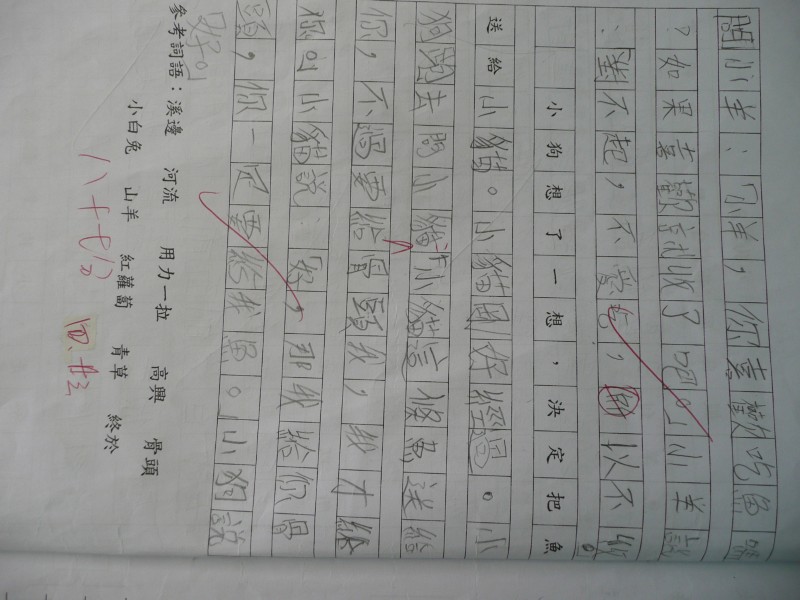 問小羊：「小羊，你喜歡吃魚嗎
？如果喜歡就收了吧」小羊說
：對不起，不愛吃，所以不
小狗想了一想，決定把魚
送給小貓。小貓因好經過。小
狗跑去問小貓：小貓這條魚送給
你，不過要給骨頭我，我才給
你」小貓說：好，那我給你骨
頭，你一定要給我魚。」小狗說
好」
參考詞語：溪邊 河流 用力一拉 高興 骨頭
小白兔 山羊 紅蘿蔔 青草 終於
八十七分